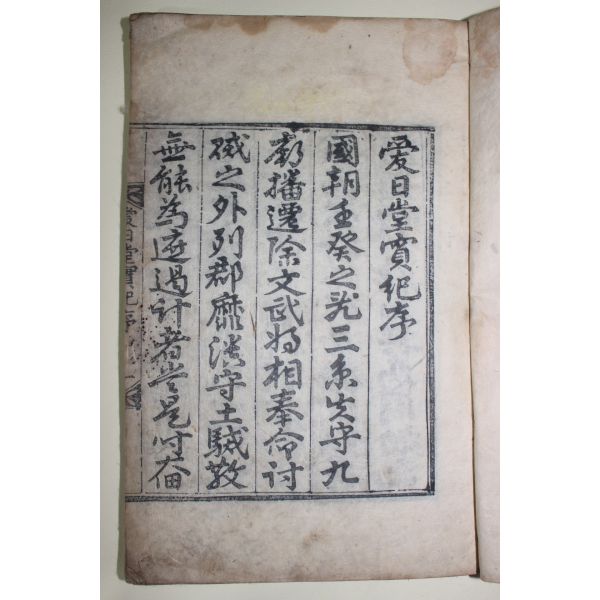 愛日堂實紀序
國朝壬癸之三京失守九
廟播遷除文武將相奉命討
賊之外列郡靡潰守土駴散
無能為遮遏計者當是時奮
愛日堂實紀序